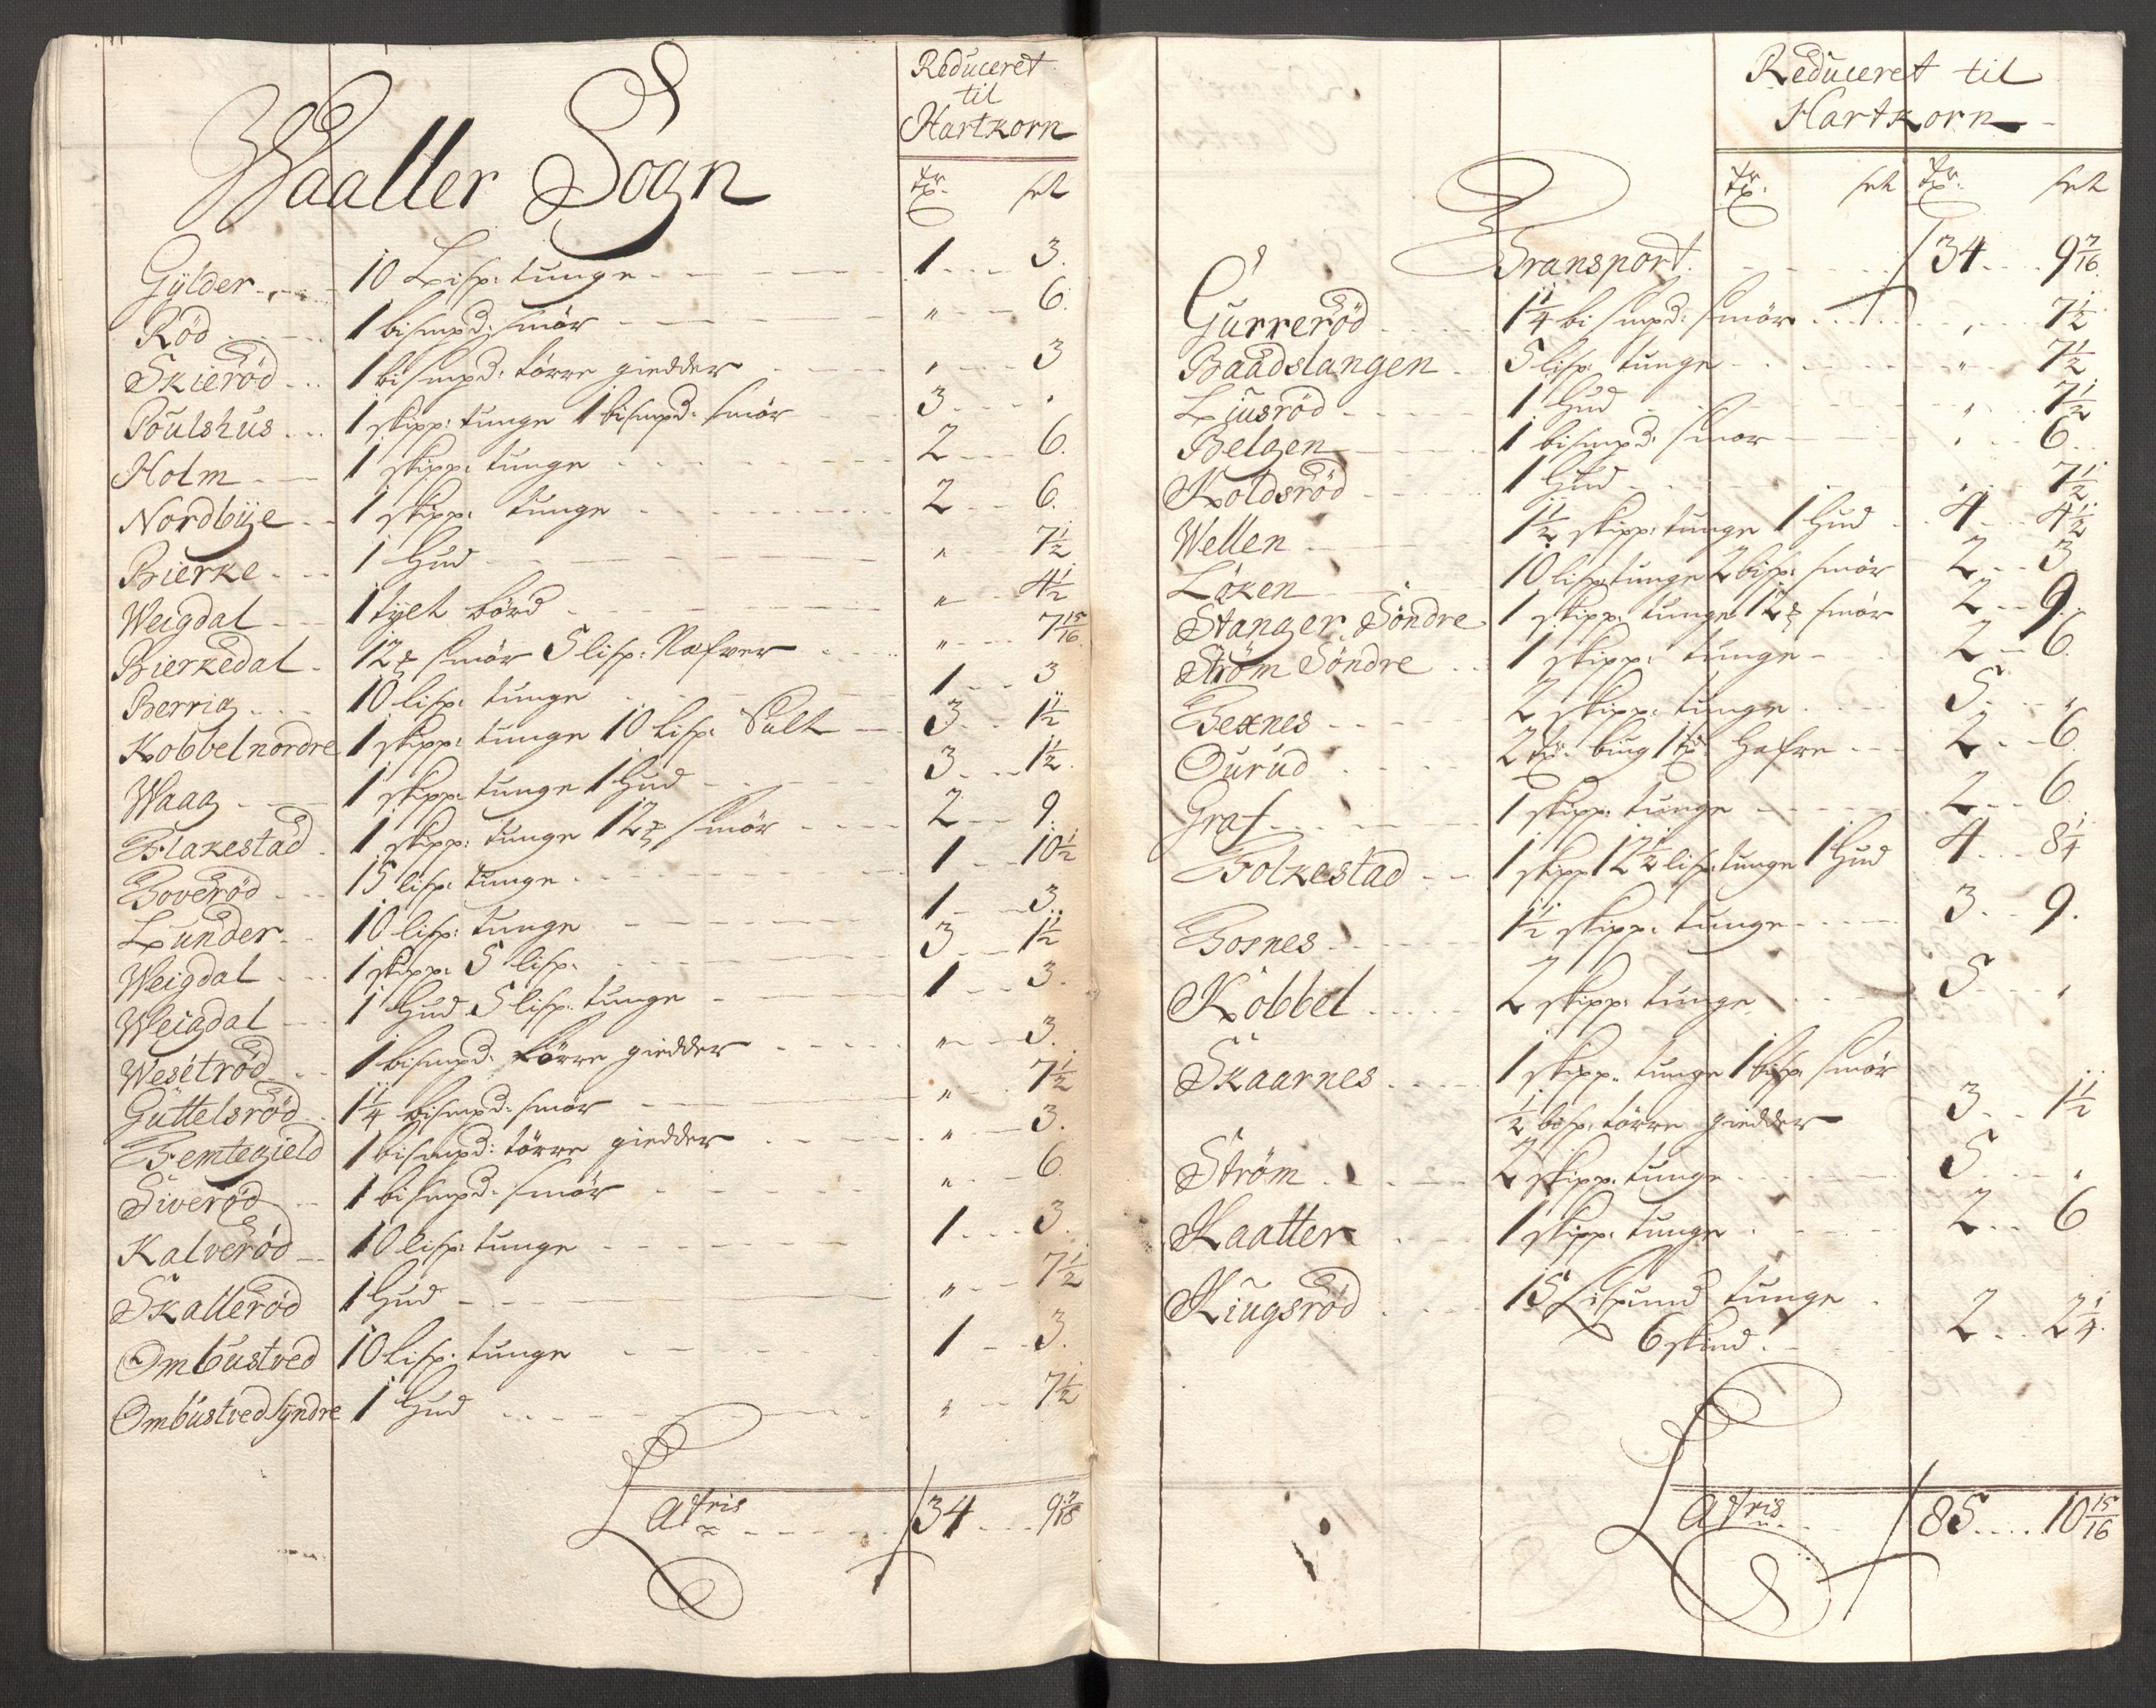 Reduceret
til
Hartkorn
Waaller Sogn
Gÿlder 10 Lisp: tunge 1 3.
Röd 1 bismpd: smör " 6.
Skieröd 1 bismpd: törre giedder " 3
Poulshus 1 skipp: tunge 1 bismpd: smör 3 "
Holm 1 skipp: tunge 2 6.
Nordbÿe 1 skipp: tunge 2 6.
Bierke 1 Hud " 7½
Weigdal 1 tylt börd " 4½
Bierkedal 12 smör 5 lisp: Nafver " 7 15/16
Berrig 10 lisp: tunge 1 3
Kobbel nordre 1 skipp: tunge 10 Lisp: Salt 3 1½
Waag 1 skipp: tunge 1 Hud 3 1½
Flakestad 1 skipp: tunge 12 smör 2 9.
Goveröd 15 lisp: tunge 1 10½
Lunder 10 lisp: tunge 1 3.
Weigdal 1 skipp: 5 lisp: 3 1½
Weigdal 1 Hud 5 lisp: tunge 1 3.
Wesetröd 1 bismpd: törre giedder " 3.
Guttelsröd 1¼ bismpd: smör " 7½
Femtegield 1 bismpd: törre giedder " 3.
Siveröd 1 bismpd: smör " 6.
Kalveröd 10 lisp: tunge 1 3.
Skalleröd 1 Hud " 7½
Ombustved 10 Lisp: tunge 1 3.
Ombustved sÿndre 1 Hud " 7½
Latris 34 9 7/16
Reduceret til
Hartkorn
Transport 34 9 7/16
Gurreröd 1¼ bismpd: smör " 7½
Baadslangen 5 lisp: tunge " 7½
Ljusröd 1 Hud " 7½
Belgen 1 bismpd: smör " 6.
Koldsröd 1 Hud " 7½
Wellen 1½ skipp: tunge 1 Hud 4 4½
Löken 10 lisp: tunge 2 bisp: smör 2 3
Stanger Söndre 1 skipp: tunge 12 smör 2 9.
Ström Söndre 1 skipp: tunge 2 6.
Texnes 2 skipp: tunge 5 "
Ourud 2 tr: bug 1 tr: Hafre 2 6
Graf 1 skipp: tunge 2 6
Folkestad 1 skipp 12½ lisp: tunge 1 Hud 4 8¼
Tosnes 1½ skipp: tunge 3 9.
Kobbel 2 skipp: tunge 5 "
Skaarnes 1 skipp: tunge 1 bisp: smör
½ bisp: törre giedder 3 1½
Ström 2 skipp: tunge 5 "
Kaatter 1 skipp: tunge 2 6
Kiugsröd 15 Lispund tunge
6 skind 2 2¼
Latris 85 10 15/16